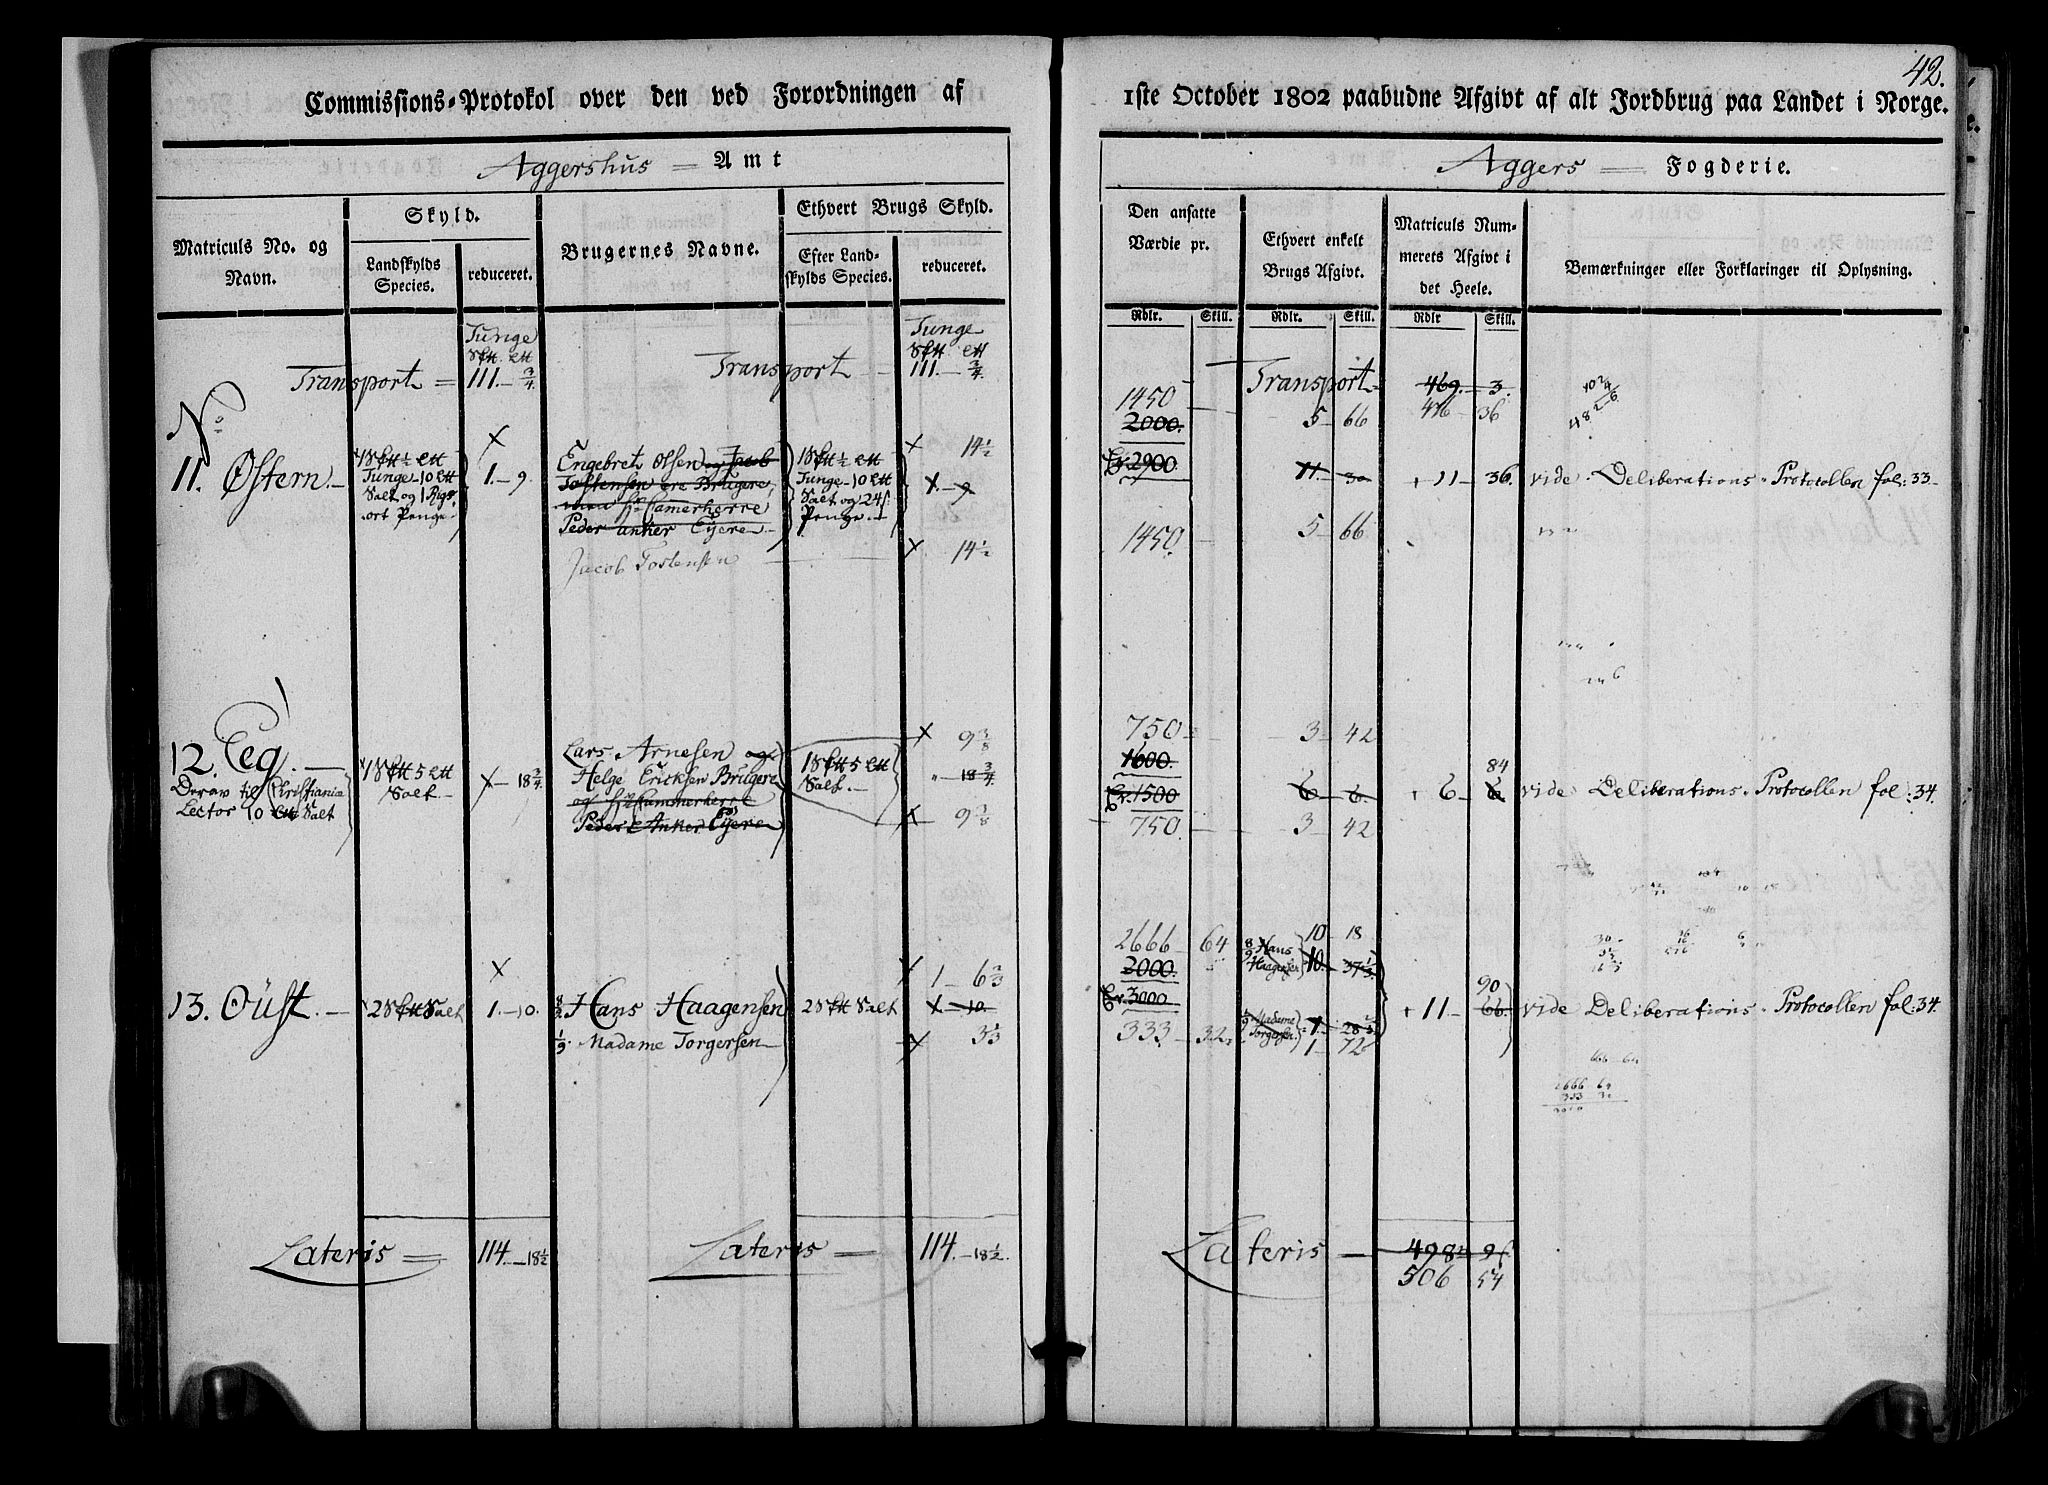 42.
Commissions-Protokol over den ved Forordningen af
1ste October 1802 paabudne Afgivt af alt Jordbrug paa Landet i Norge.
Aggershus = Amt
Aggers = Fogderie.
Matriculs No. og Navn.
Skyld.
Landskylds Species.
reduceret.
Brugernes Navne.
Ethvert Brugs Skyld.
Efter Landskylds Species.
reduceret.
Den ansatte Værdie pr.
Ethvert enkelt Brugs Afgivt.
Matriculs Nummerets Afgivt i det Heele.
Bemærkninger eller Forklaringer til Oplysning.
Rdlr. Skill. Rdlr. Skill. Rdlr Skill.
Tunge
Transport = 111. - 3/4
Tunge
Transport - 111. - 3/4.
Transport - 469. - 3.
476 - 36
No
11. Østern. -
1 S℔ ½ ℔
Tunge - 10 ℔
Salt og 1 Rigs
ort Penge.
1. - 9.
Engebret Olsen og Jacob
Tostensen ere Brugere,
men Hr Camerherre
Peder Anker Eyere -
Jacob Tostensen
1 S℔ ½ ℔
Tunge - 10 ℔
Salt og 24 s
Penge. -
14½
1. - 9
14½
1450 -
2000.
2900
1450 -
5 - 66
11. - 30
5 - 66
11 - 36.
vide Deliberations-Protocollen fol: 33 -
12. Eeg. -
Derav til Christiania
Lector 10 ℔ Salt
1 S℔ 5 ℔
Salt. -
18¾
Lars Arnesen og
Helge Ericksen Brugere
og Hr Cammerherre
Peder Anker Eyere
1 S℔ 5 ℔
Salt. -
9 3/8
18 3/4
9 3/8
750
1600.
1500
750.
3 - 42
6 - 6.
3 - 42
84
6 - 6
vide Deliberations-Protocollen fol: 34.
13. Oüst. -
2 S℔ Salt
1. - 10.
8/9 Hans Haagensen
1/9. Madame Torgersen -
2 S℔ Salt
1 - 6 2/3
1 - 10.
3 1/3
2666 - 64
2000.
3000
333 - 32.
10 - 18
8/9 Hans Haagensen 10. - 37 1/3
1/9 Madame Torgersen 1. - 28
1 - 72
90
11 - 66.
vide Deliberations-Protocollen fol: 34.
2666 64
333 32
Lateris = 114. - 18½
Lateris - 114. - 18½.
Lateris - 498 - 9
506 54